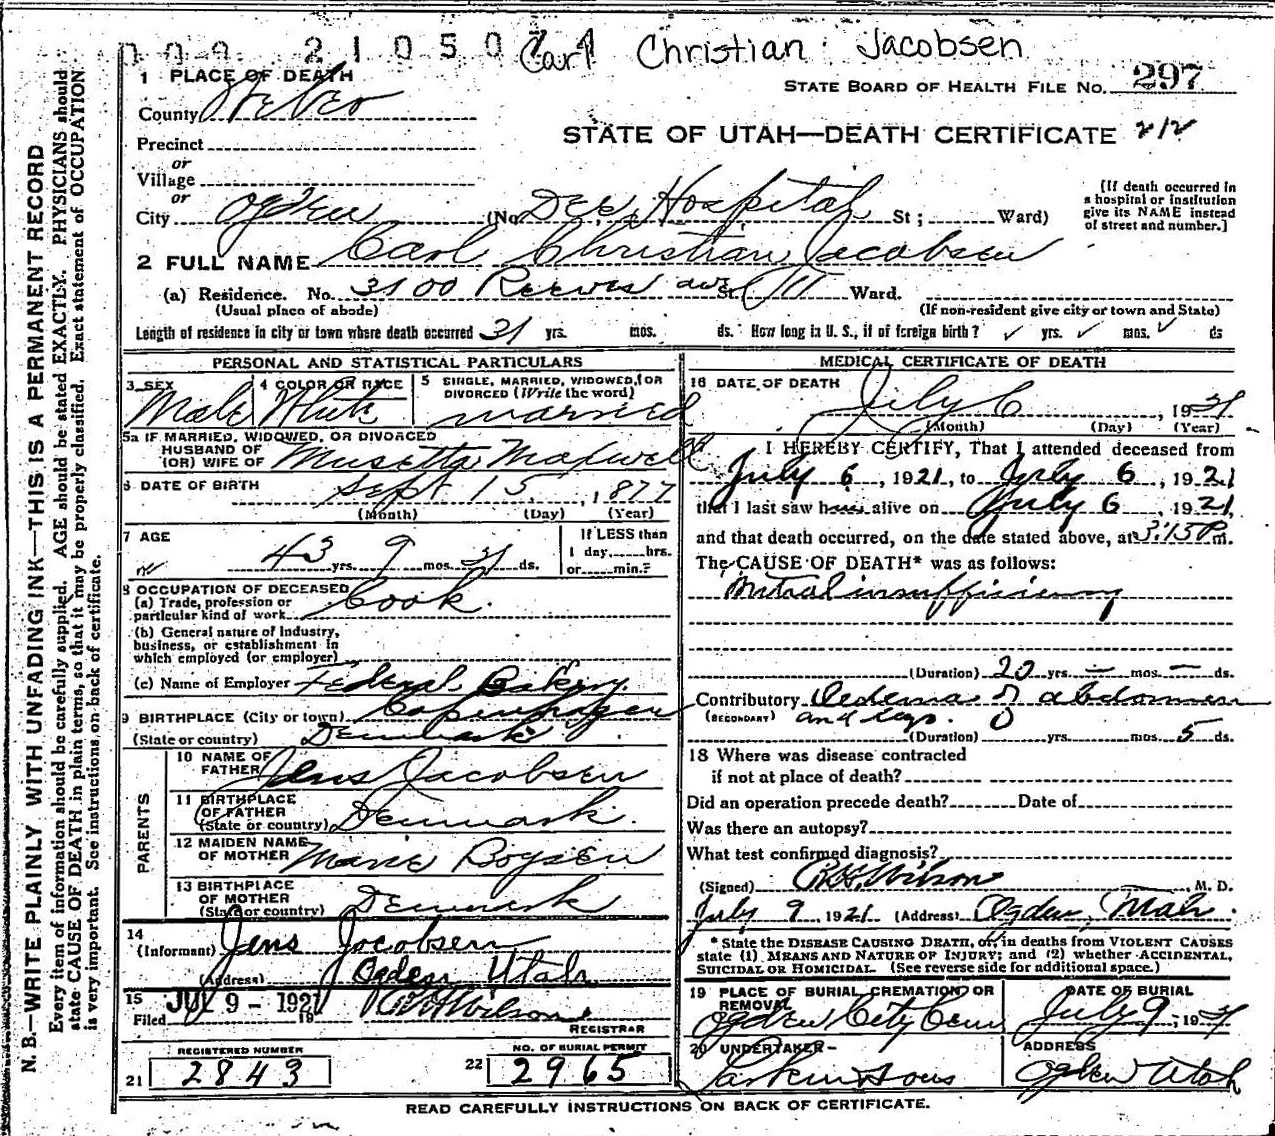 009 210507 4 Carl Christian Jacobsen
1 PLACE OF DEATH
STATE BOARD OF HEALTH FILE NO. 297
County Weber
STATE OF UTAH—DEATH CERTIFICATE 212
Precinct
or
Village
or
City Ogden (No. Dee Hospital St; Ward)
[If death occurred in
a hospital or institution
give its NAME instead
of street and number.]
2 FULL NAME Carl Christian Jacobsen
(a) Residence. No. 3100 Reeves ave St. Ward.
(Usual place of abode) (If non-resident give city or town and State)
Length of residence in city or town where death occurred 31 yrs. mos. ds. How long in U. S., if of foreign birth? yrs. mos. ds
PERSONAL AND STATISTICAL PARTICULARS
3 SEX Male
4 COLOR OR RACE White
5 SINGLE, MARRIED, WIDOWED, OR
DIVORCED (Write the word)
married
5a IF MARRIED, WIDOWED, OR DIVORCED
HUSBAND OF
(OR) WIFE OF Musetta Maxwell
6 DATE OF BIRTH Sept 15, 1877
(Month) (Day) (Year)
7 AGE 43 yrs. 9 mos. 21 ds.
If LESS than
1 day, hrs.
or min.?
8 OCCUPATION OF DECEASED
(a) Trade, profession or
particular kind of work Cook.
(b) General nature of Industry,
business, or establishment in
which employed (or employer)
(c) Name of Employer Federal Bakery.
9 BIRTHPLACE (City or town) Copenhagen
(State or country) Denmark
PARENTS
10 NAME OF
FATHER Jens Jacobsen
11 BIRTHPLACE
OF FATHER
(State or country) Denmark.
12 MAIDEN NAME
OF MOTHER Marie Boysen
13 BIRTHPLACE
OF MOTHER
(State or country) Denmark
14
(Informant) Jens Jacobsen
(Address) Ogden Utah
15 JUL 9 - 1921
Filed 19
REGISTRAR
REGISTERED NUMBER
21 2843
NO. OF BURIAL PERMIT
22 2965
MEDICAL CERTIFICATE OF DEATH
16 DATE OF DEATH July 6, 1921
(Month) (Day) (Year)
I HEREBY CERTIFY, That I attended deceased from
July 6, 1921, to July 6, 1921
that I last saw h alive on July 6, 1921,
and that death occurred, on the date stated above, at 3:15 P m.
The CAUSE OF DEATH* was as follows:
Mitral insufficiency
(Duration) 20 yrs. — mos. — ds.
Contributory Oedema of abdomen
(SECONDARY) and legs.
(Duration) yrs. mos. 5 ds.
18 Where was disease contracted
if not at place of death?
Did an operation precede death? Date of
Was there an autopsy?
What test confirmed diagnosis?
(Signed) Wilson, M. D.
July 9, 1921 (Address) Ogden, Utah.
* State the DISEASE CAUSING DEATH, or, in deaths from VIOLENT CAUSES
state (1) MEANS AND NATURE OF INJURY; and (2) whether ACCIDENTAL,
SUICIDAL OR HOMICIDAL. (See reverse side for additional space.)
19 PLACE OF BURIAL CREMATION OR
REMOVAL
Ogden City Cem
DATE OF BURIAL
July 9, 1921
20 UNDERTAKER
Larkin & Sons
ADDRESS
Ogden Utah
READ CAREFULLY INSTRUCTIONS ON BACK OF CERTIFICATE.
N. B.—WRITE PLAINLY WITH UNFADING INK—THIS IS A PERMANENT RECORD
Every item of information should be carefully supplied. AGE should be stated EXACTLY. PHYSICIANS should
state CAUSE OF DEATH in plain terms, so that it may be properly classified. Exact statement of OCCUPATION
is very important. See instructions on back of certificate.